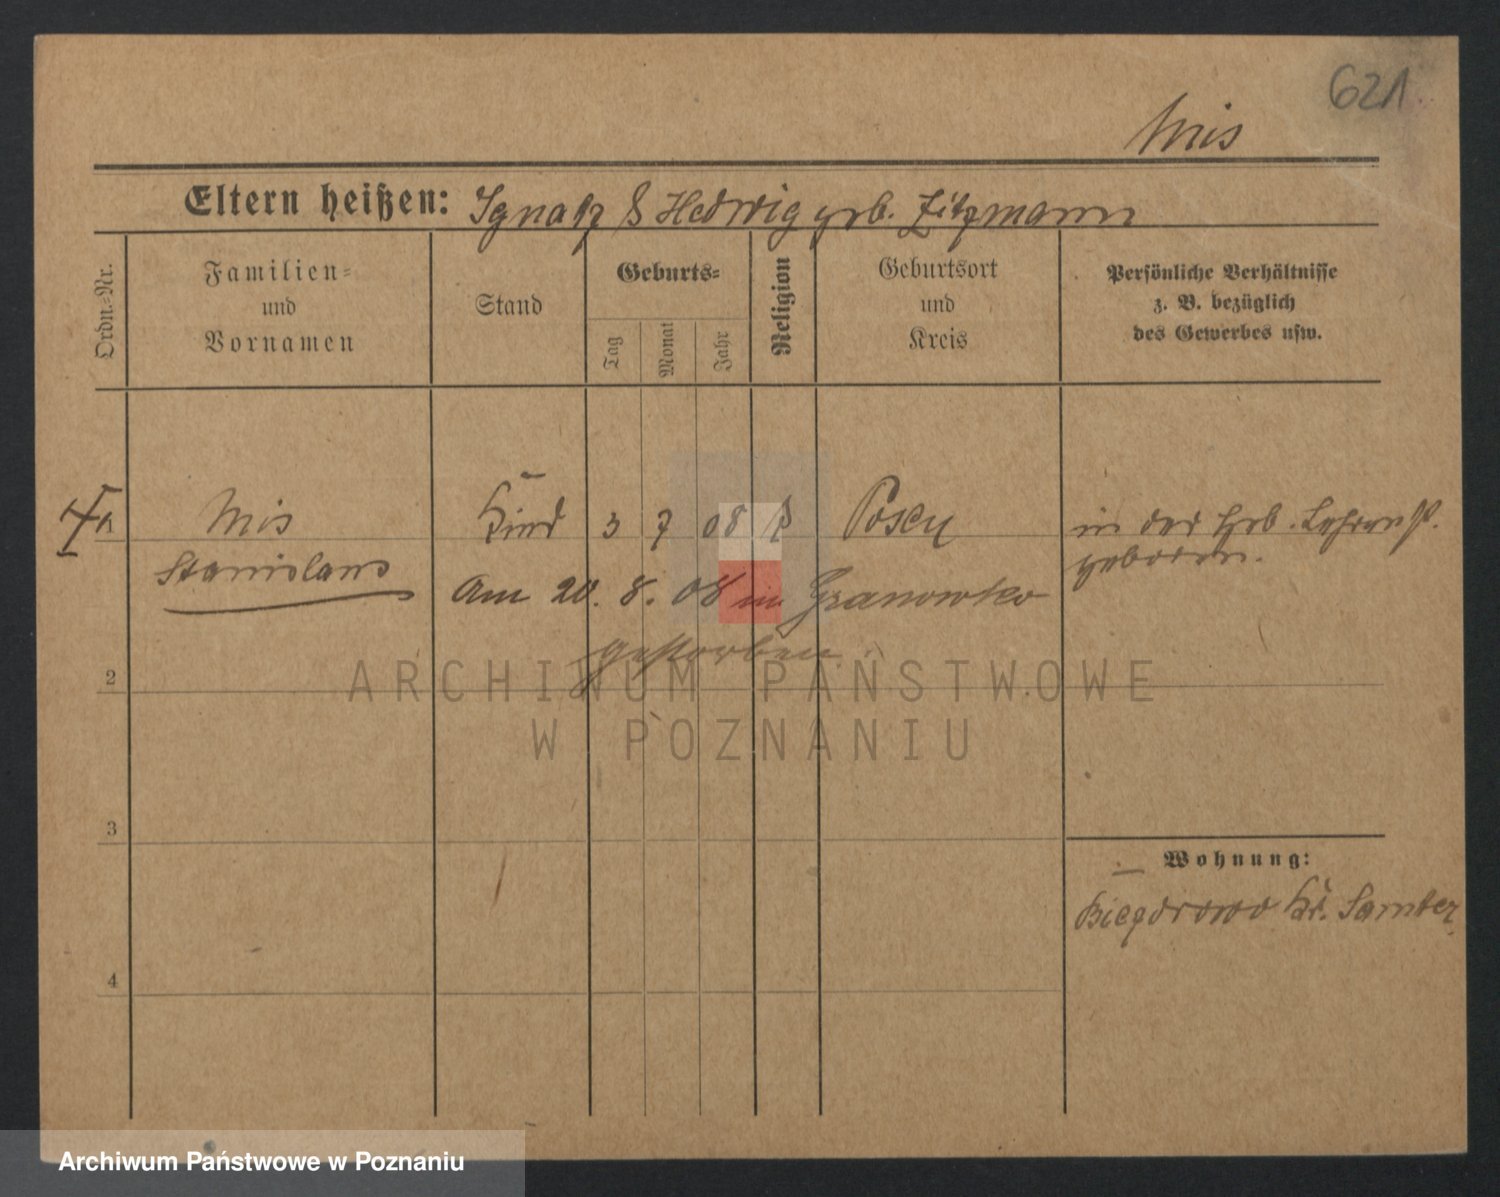 621
Mis
Eltern heißen: Ignatz & Hedwig geb. Zitzmann
Ordn.-Nr.
Familien-
und
Vornamen
Stand
Geburts-
Tag
Monat
Jahr
Religion
Geburtsort
und
Kreis
Persönliche Verhältnisse
z. B. bezüglich
des Gewerbes usw.
Mis Kind 3 7 08 k Posen in der Heb. Lehranst.
Stanislaus geboren.
Am 20. 8. 08 in Granowko
gestorben.
2
3
4
Wohnung:
Biezdrowo Kr. Samter
ARCHIWUM PAŃSTWOWE
W POZNANIU
Archiwum Państwowe w Poznaniu